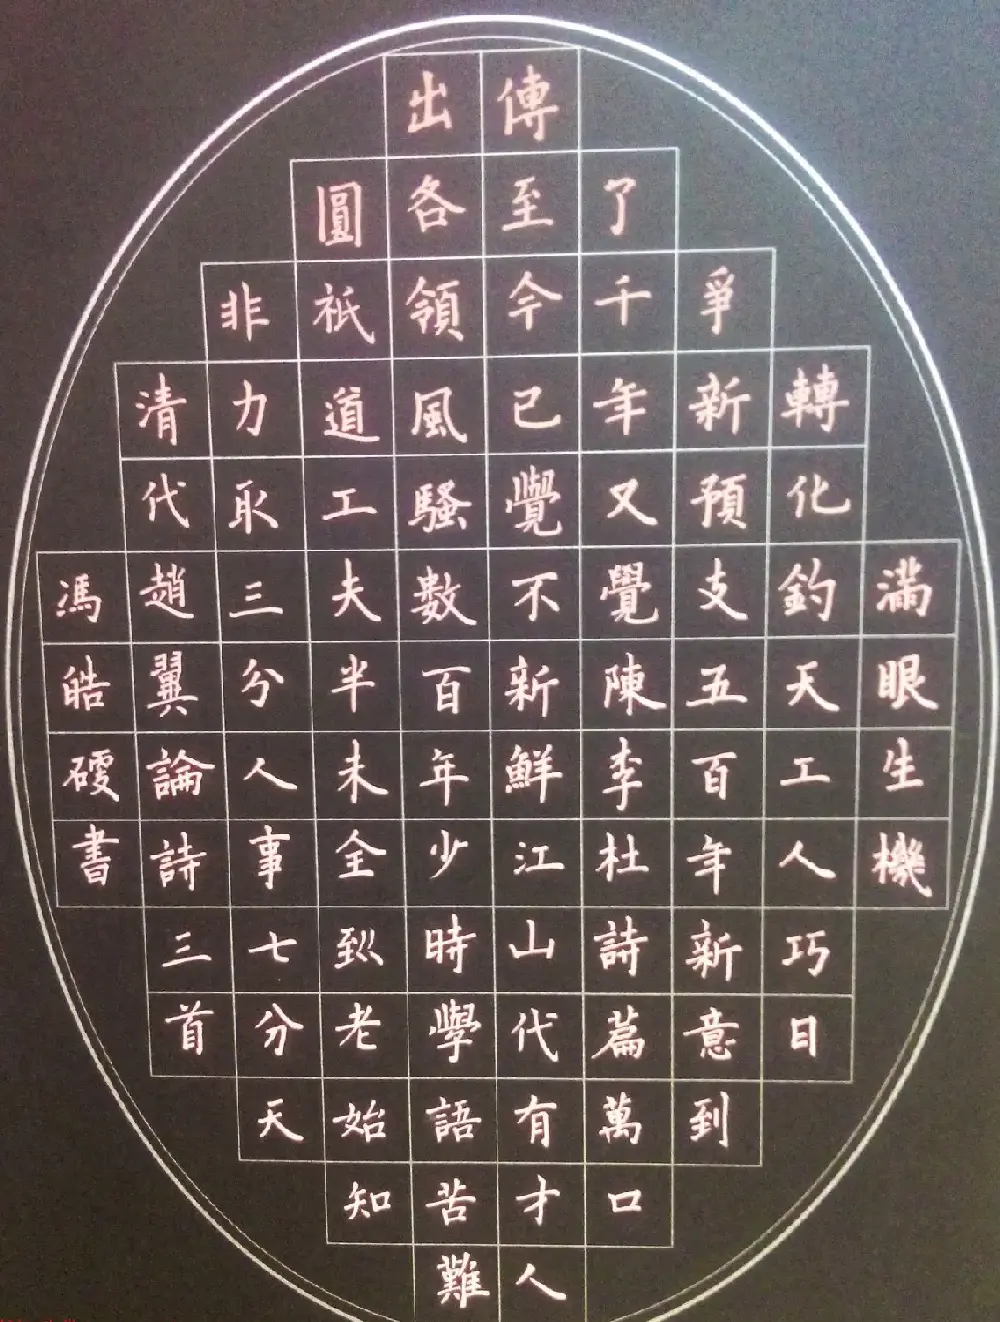 滿眼生機
轉化釣天工人巧日
爭新預支五百年新意到
了千年又覺陳李杜詩篇萬口
傳至今已覺不新鮮江山代有才人
出各領風騷數百年少時學語苦難
圓祇道工夫半未全到老始知
非力取三分人事七分天
清代趙翼論詩三首
馮皓書